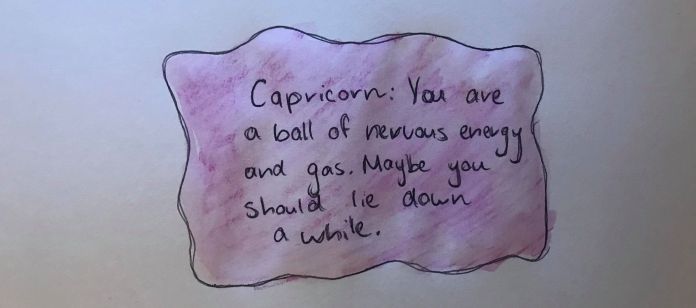 Capricorn: You are
a ball of nervous energy
and gas. Maybe you
should lie down
a while.